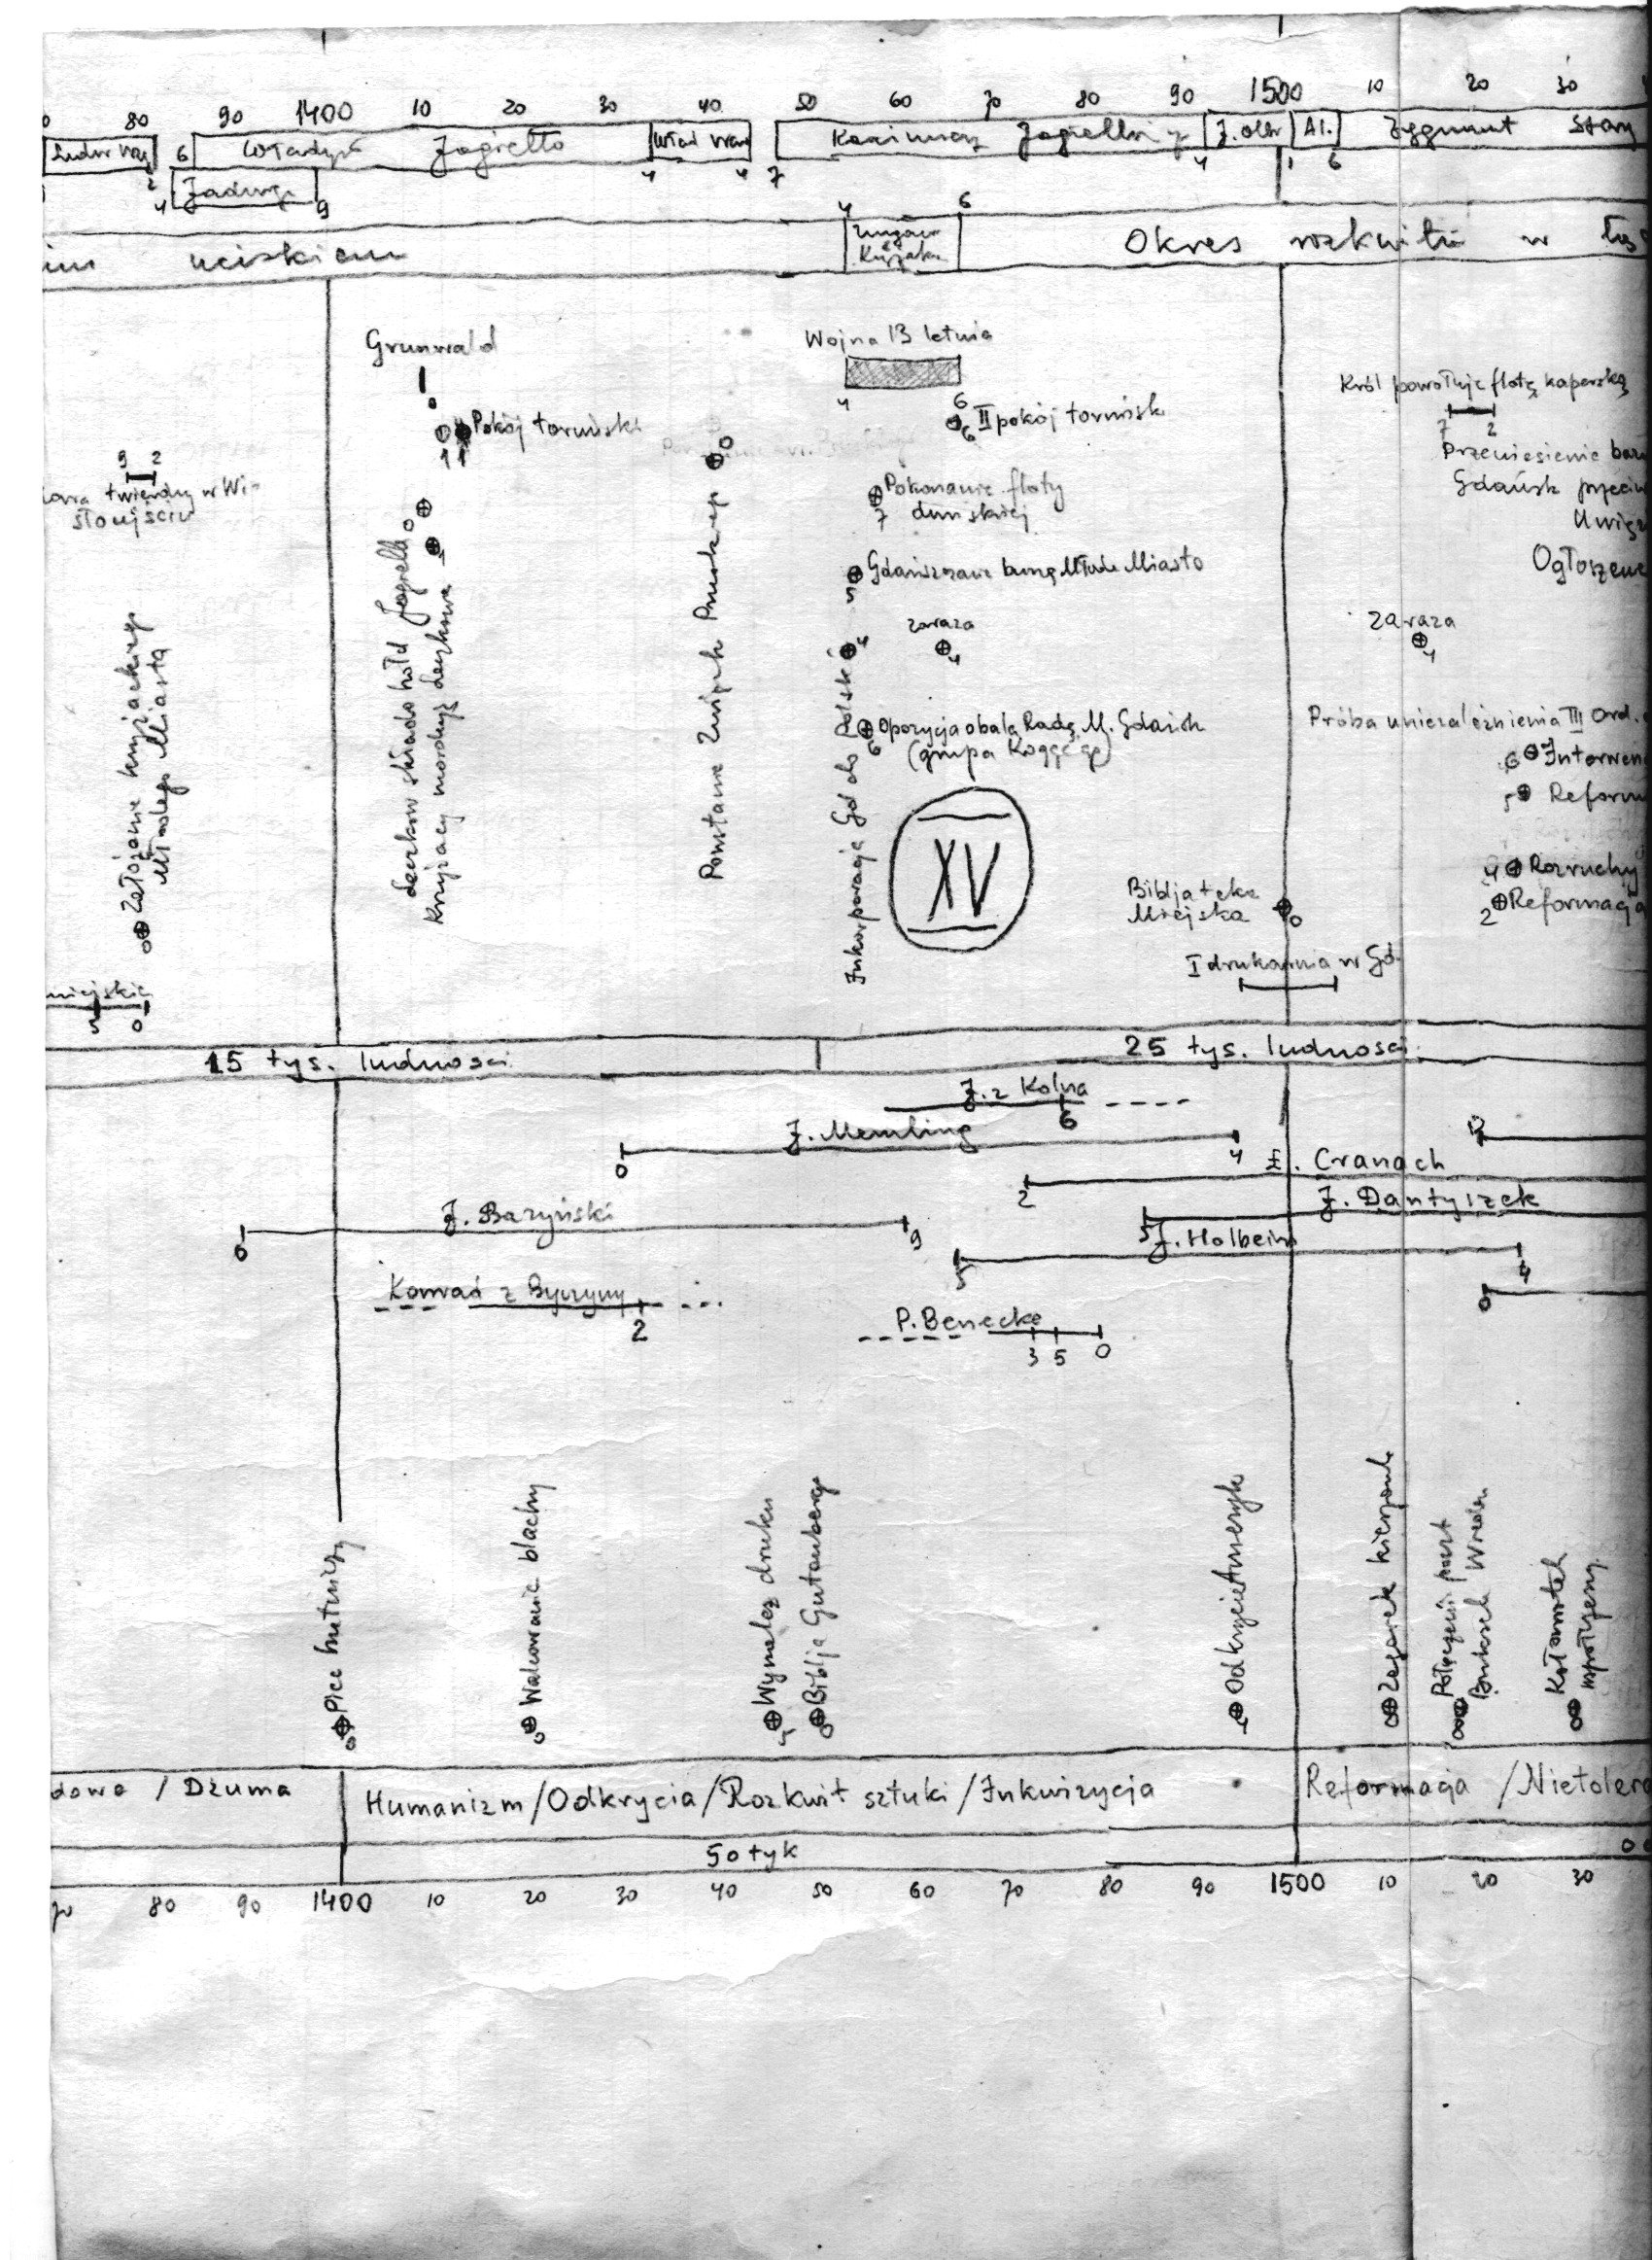 80 90 1400 10 20 30 40 50 60 70 80 90 1500 10 20 30
6 Jagiełło Kazimierz J. Olbr Al. Zygmunt Stary
2 4 4 7 4 1 6
Jadwiga
4 9
4 6
uciskiem
Okres rozkwitu w
Grunwald
Wojna 13 letnia
4 6
Król powołuje flotę kaperską
7 2
0
Pokój toruński
11
II pokój toruńsk
6
0
9 2
twierdzy w Wi
słoujściu
Przeniesienie
Gdańsk
Pokonanie floty
7 duńskiej
0
1
Ogłoszenie
Gdańszczanie burzą Młode Miasto
5
zaraza
4
zaraza
4
Założenie krzyżackiego
Młodego Miasta
0
Leczkow składa hołd Jagielle
Krzyżacy mordują Leczkowa
Powstanie Związk Pruskiego
Inkorporacja Gd do Polski
4
Opozycja obala Radę M. Gdańsk
6 (grupa Koggego)
Próba uniezależnienia III Ord.
6 Interwen
5 Reform
XV
4 Rozruchy
2 Reformacja
Bibljoteka
Miejska
0
I drukarnia w Gd.
miejskie
5 0
15 tys. ludności
25 tys. ludności
J. z Kolna
6
J. Memling
0 4
Ł. Cranach
2
J. Dantyszek
5
J. Bażyński
6 9
J. Holbein
5 4
Konrad z Byczyny
2
0
P. Benecke
3 5 0
Piec hutniczy
0
Walcowanie blachy
0
Wynalez druku
5
Biblja Gutenberga
0
Odkrycie Ameryk
4
Zegarek kieszonk
0
Połączenie poczt
Bruksela Wiedeń
Kołowrotek
0
dowa / Dżuma
Humanizm/Odkrycia/Rozkwit sztuki/Inkwizycja
Reformacja /Nietolera
50 tyk
70 80 90 1400 10 20 30 40 50 60 70 80 90 1500 10 20 30